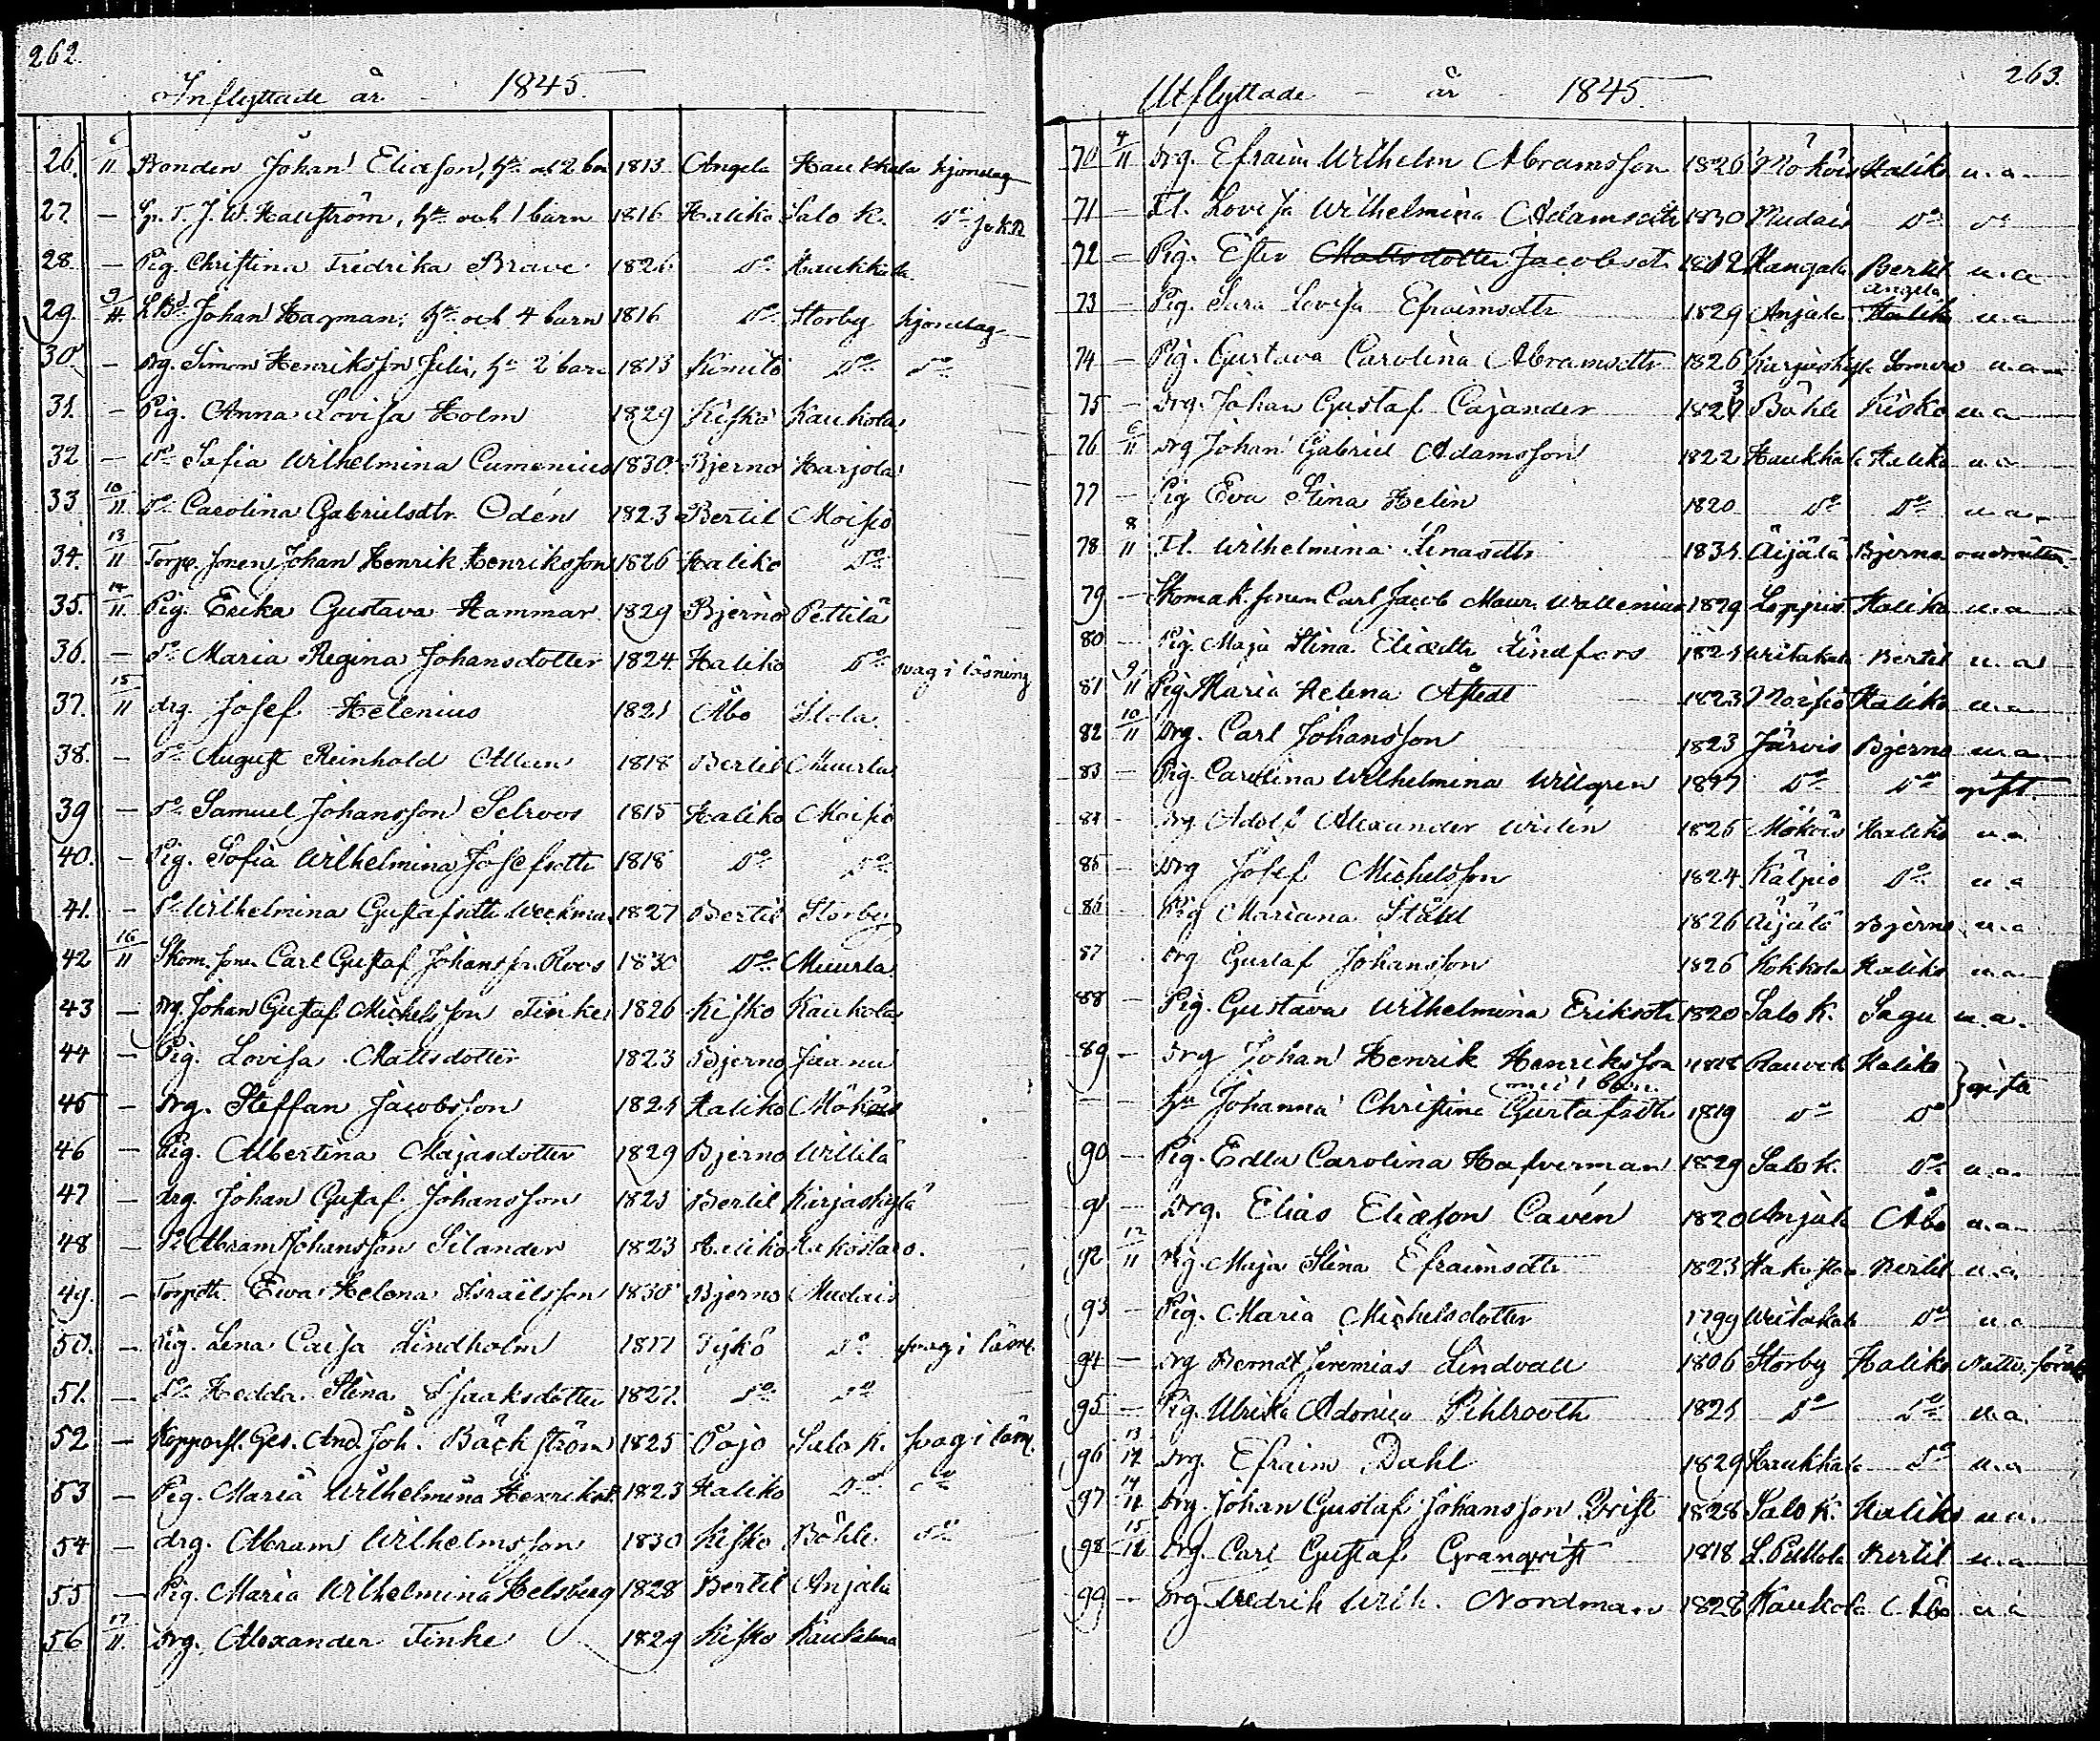 262.
Inflyttade år 1845.
26. 6/11 Bonden Johan Eliasson, hu och 2 barn 1813 Angela Haukkala hjonelag
27. — J. W. Hallström, hu och 1 barn 1816 Haliko Salo K. do
28. — Pig. Christina Fredrika Brave 1826 do Haukkala
29. 9/11 Johan Hagman, hu och 4 barn 1816 do Storby hjonelag
30. — drg. Simon Henriksson Julin, hu 2 barn 1813 Kimito do do
31. — Pig. Anna Lovisa Holm 1829 Kisko Kaukola
32 — do Sofia Wilhelmina Cumenius 1830 Bjerno Harjola
33 10/11 do Carolina Gabrielsdtr Odén 1823 Bertil Moisio
34. 13/11 Torp. sonen Johan Henrik Henriksson 1826 Haliko do
35. 14/11 Pig. Erika Gustava Hammar 1829 Bjerno Pettilä
36. — do Maria Regina Johansdotter 1824 Haliko do svag i läsning
37. 15/11 drg. Josef Helenius 1821 Åbo
38. — do August Reinhold 1818 Bertil Muurla
39 — do Samuel Johansson Selroos 1815 Haliko Moisio
40. — Pig. Sofia Wilhelmina Josefsdtr 1818 do do
41. — do Wilhelmina Gustafsdtr Weckman 1827 Bertil Storby
42 16/11 Skom. sonen Carl Gustaf Johansson Roos 1830 do Muurla
43 — drg. Johan Gustaf Michelsson Finke 1826 Kisko Kaukola
44 — Pig. Lovisa Mattsdotter 1823 Bjerno Juanu
45 — drg. Steffan Jacobsson 1821 Haliko Mökois
46 — Pig. Albertina Majasdotter 1829 Bjerno Willilä
47 — drg. Johan Gustaf Johansson 1823 Bertil Kirjaskylä
48 — do Abram Johansson Silander 1823 Haliko
49. — Torpdtr. Ewa Helena Israëlsson 1830 Bjerno Mudais
50. — Pig. Lena Caisa Lindholm 1817 Tykö do svag i läsn.
51. — do Hedda Stina Isaaksdotter 1827. do do
52 — Kopparsl. Ges. And. Joh. Bäckström 1825 Pojo Salo K. svag i läsn.
53 — Pig. Maria Wilhelmina Henriksd. 1823 Haliko do do
54 — drg. Abram Wilhelmsson 1830 Kisko Böhle do
55 — Pig. Maria Wilhelmina Helsberg 1828 Bertil Anjala
56 17/11 drg. Alexander Finke 1829 Kisko
263.
Utflyttade år 1845.
70 4/11 drg. Efraim Wilhelm Abramsson 1826 Mökois Haliko u.a.
71 — Fl. Lovisa Wilhelmina Adamsdtr 1830 Mudais do do
72 — Pig. Ester Mattsdotter Jacobsdtr 1812 Kangala Bertil u.a
73 — Pig. Sara Lovisa Efraimsdtr 1829 Anjala Haliko Angela u.a
74 — Pig. Gustava Carolina Abramsdtr 1826 Kirjaskylä Somero u.a
75 — drg. Johan Gustaf Cajander Böhle Kisko u.a
76 6/11 drg Johan Gabriel Adamsson 1822 Haukkala Haliko u.a
77 — Pig Eva Stina Helin 1820 do do u.a.
78 8/11 Fl. Wilhelmina Linasdtr 1831 Äijälä Bjerno
79 — Skomak. sonen Carl Jacob Maur. Wallenius 1829 Haliko u.a
80 — Pig. Maja Stina Eliædtr Lindfors 1821 Writakala Bertil u.a
81 9/11 Pig. Maria Helena Åstedt 1823 Moisio Haliko u.a
82 10/11 drg. Carl Johansson 1823 Järvis Bjerno u.a
83 — Pig. Carolina Wilhelmina Willgren do do gift.
84 — drg Adolf Alexander Widén 1825 Mökois Haliko u.a
85 — drg Josef Michelsson 1824 Kälpio do u.a
86 Pig Mariana Ståhl 1826 Äijälä Bjerno u.a
87 . drg Gustaf Johansson 1826 Kokkola Haliko u.a.
88 — Pig. Gustava Wilhelmina Eriksdtr 1820 Salo K. Sagu u.a.
89 — drg Johan Henrik Henriksson 1818 Haliko
med 1 barn
— hu Johanna Christina Gustafsdtr 1819 do do } gifta
90 — Pig. Edla Carolina Hafverman 1829 Salo K. do u.a.
91 — drg. Elias Eliæson Cavén 1820 Anjala Åbo u.a
92 12/11 Pig. Maja Stina Efraimsdtr 1823 Bertil u.a.
93 — Pig. Maria Michelsdotter 1799 Writakala do u.a
94 — drg Berndt Jeremias Lindvall 1806 Storby Haliko
95 — Pig. Ulrika Adonica Pihlrooth 1821 do do u.a.
96 13/11 drg. Efraim Dahl 1829 Haukkala do u.a
97 14/11 drg. Johan Gustaf Johansson Qvist 1828 Salo K. Haliko u.a.
98 15/11 drg Carl Gustaf Granqvist 1818 L. Pullola Bertil u.a
99 — drg. Fredrik Wilh. Nordman 1828 Kaukola Åbo u.a